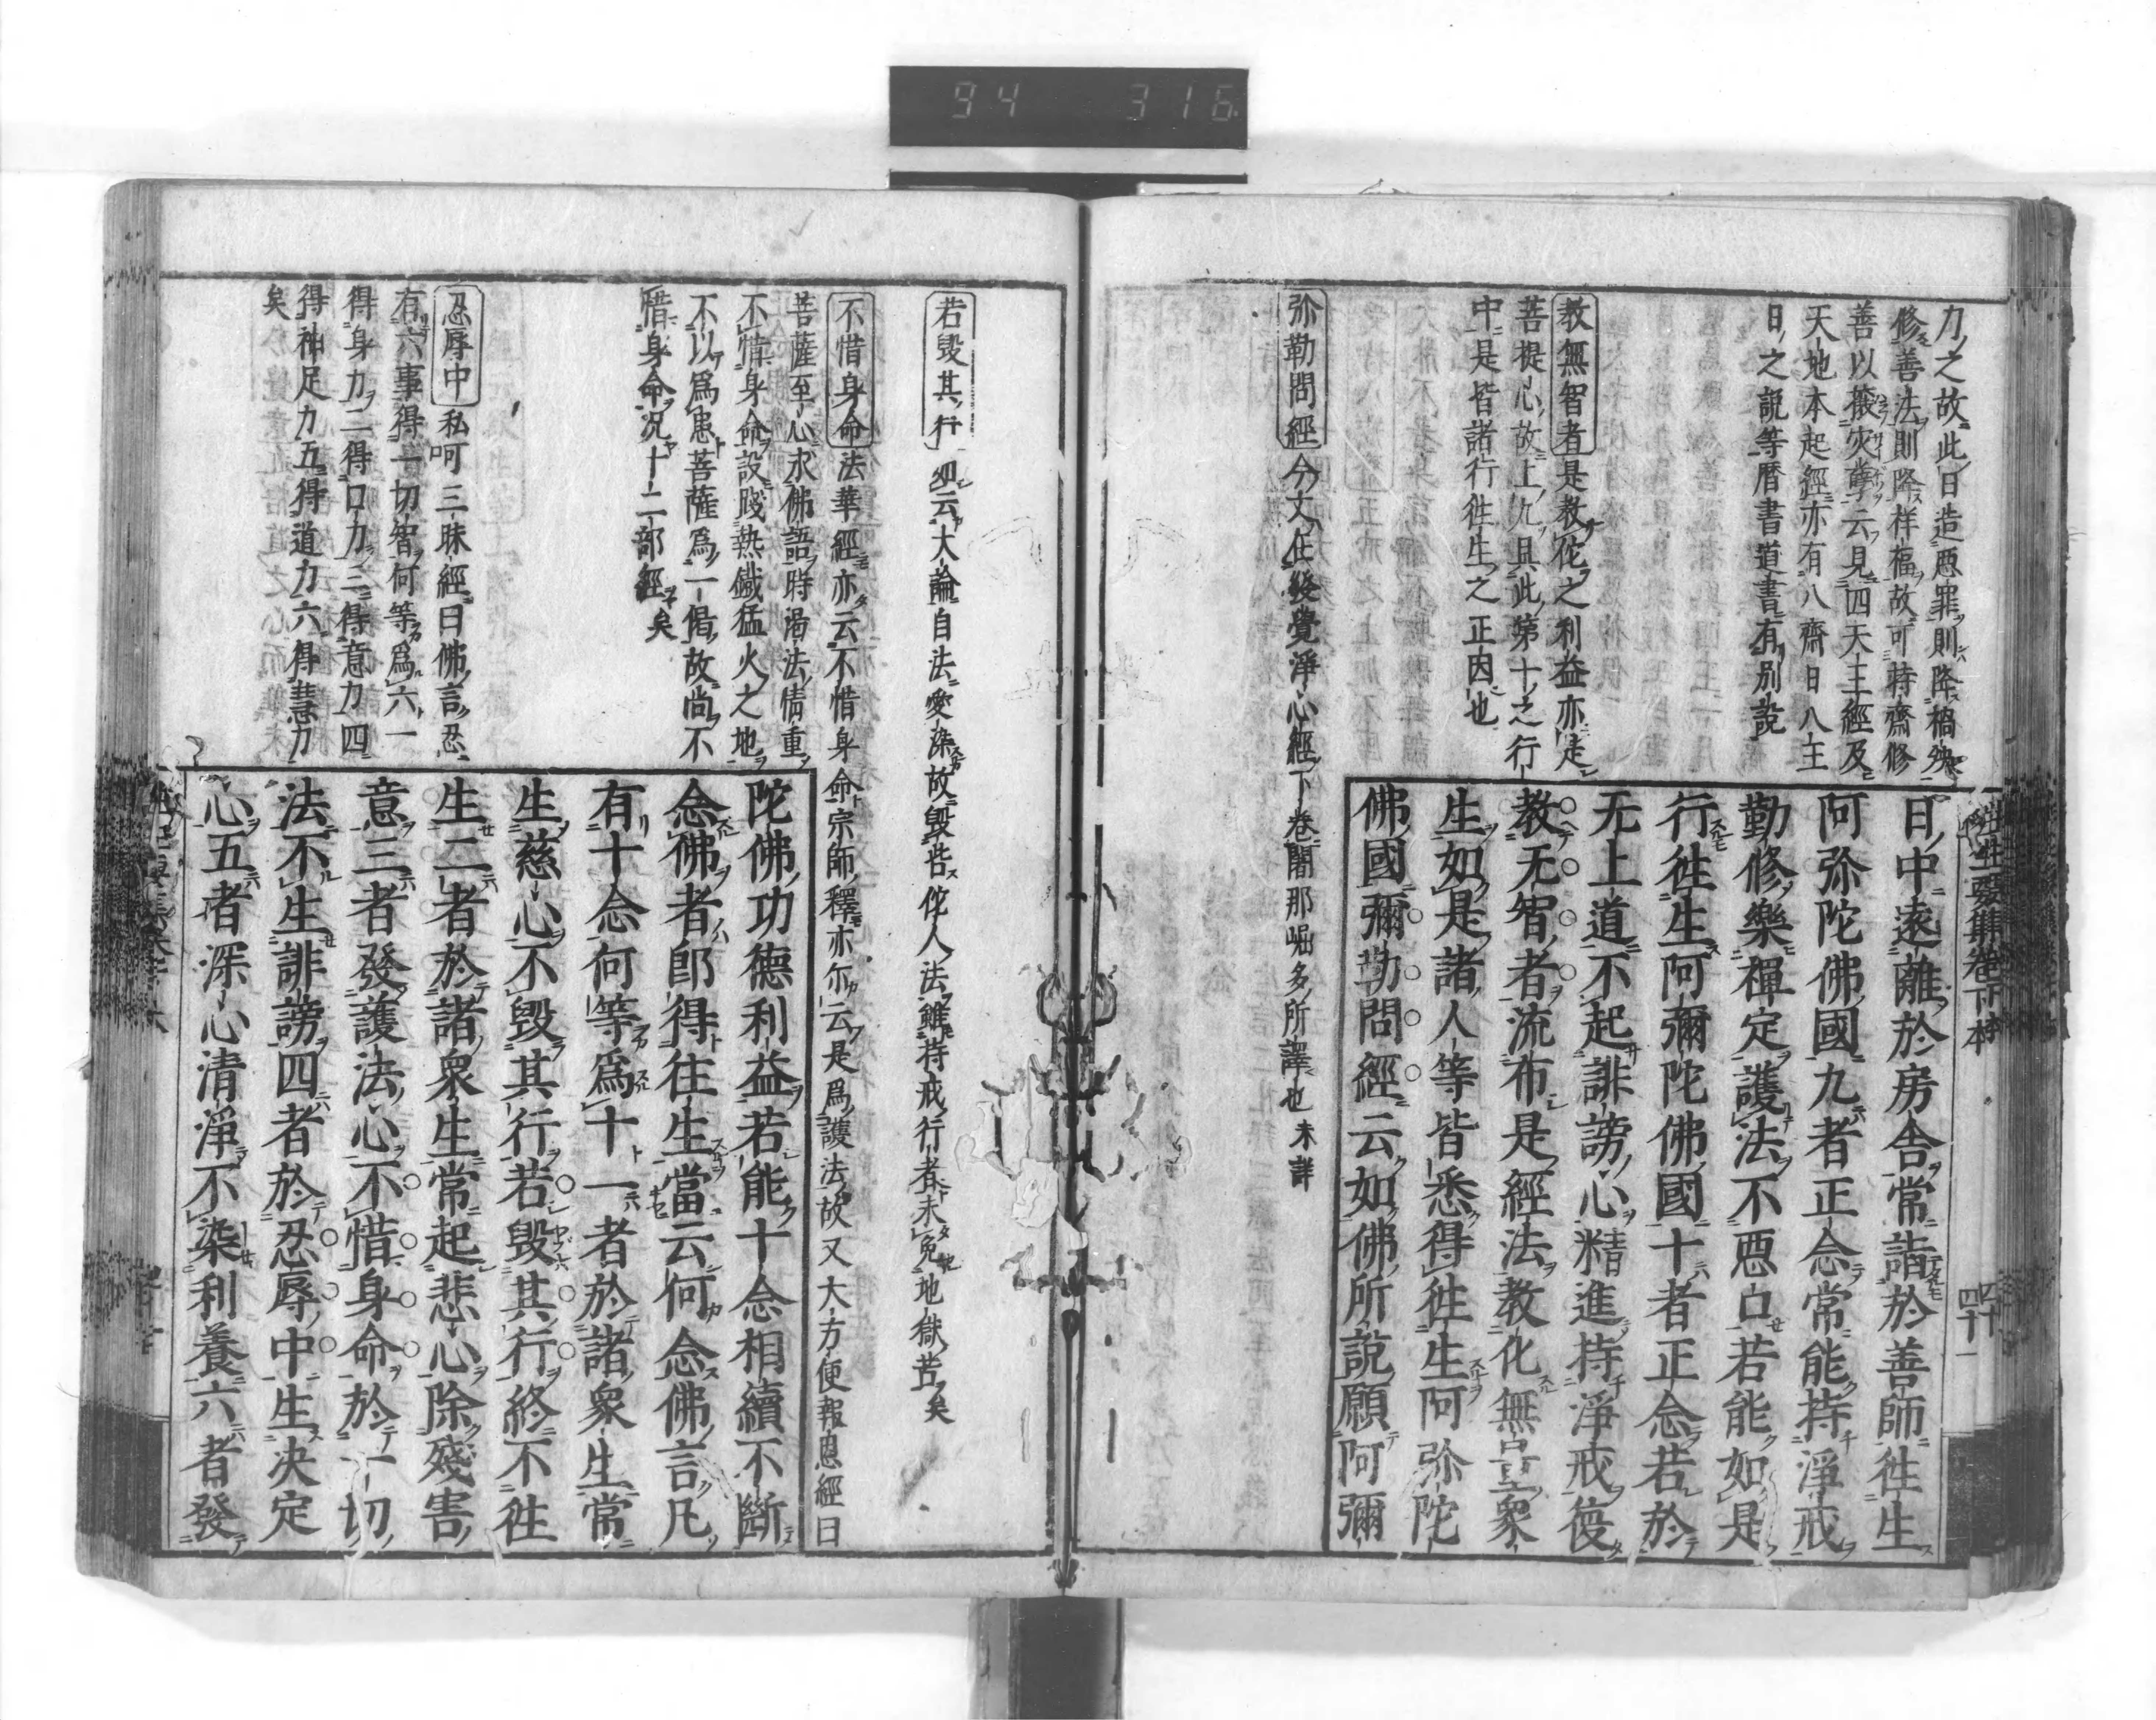 94 316
往生要集卷下本
四十一
力之故此日造惡罪則降禍殃
修善法則降祥福故可持齋修
善以攘灾孽云見四天王經及
天地本起經亦有八齋日八主
日之説等暦書道書有別説
教無智者是教佗之利益亦是
菩提心故上九具此第十之行
中是皆諸行徃生之正因也
弥勒問經今文止發覺淨心經下卷闍那崛多所譯也未詳
日中遠離於房舎常詣於善師徃生
阿弥陀佛國九者正念常能持淨戒
勤修樂禪定護法不惡口若能如是
行徃生阿彌陀佛國十者正念若於
无上道不起誹謗心精進持淨戒復
教无智者流布是經法教化無量衆
生如是諸人等皆悉得徃生阿弥陀
佛國彌勒問經云如佛所説願阿彌
若毀其行 云大論自法愛染故毀呰佗人法雖持戒行者未免地獄苦矣
不惜身命法華經亦云不惜身命宗師釋亦尓云是爲護法故又大方便報恩經曰
菩薩至心求佛語時渇法情重
不惜身命設踐熱鐵猛火之地
不以爲患菩薩爲一偈故尚不
惜身命况十二部經矣
忍辱中私呵三昧經曰佛言忍
有六事得一切智何等爲六一
得身力二得口力三得意力四
得神足力五得道力六得慧力
矣
陀佛功德利益若能十念相續不斷
念佛者即得往生當云何念佛言凡
有十念何等爲十一者於諸衆生常
生慈心不毀其行若毀其行終不徃
生二者於諸衆生常起悲心除殘害
意三者發護法心不惜身命於一切
法不生誹謗四者於忍辱中生決定
心五者深心清淨不染利養六者發